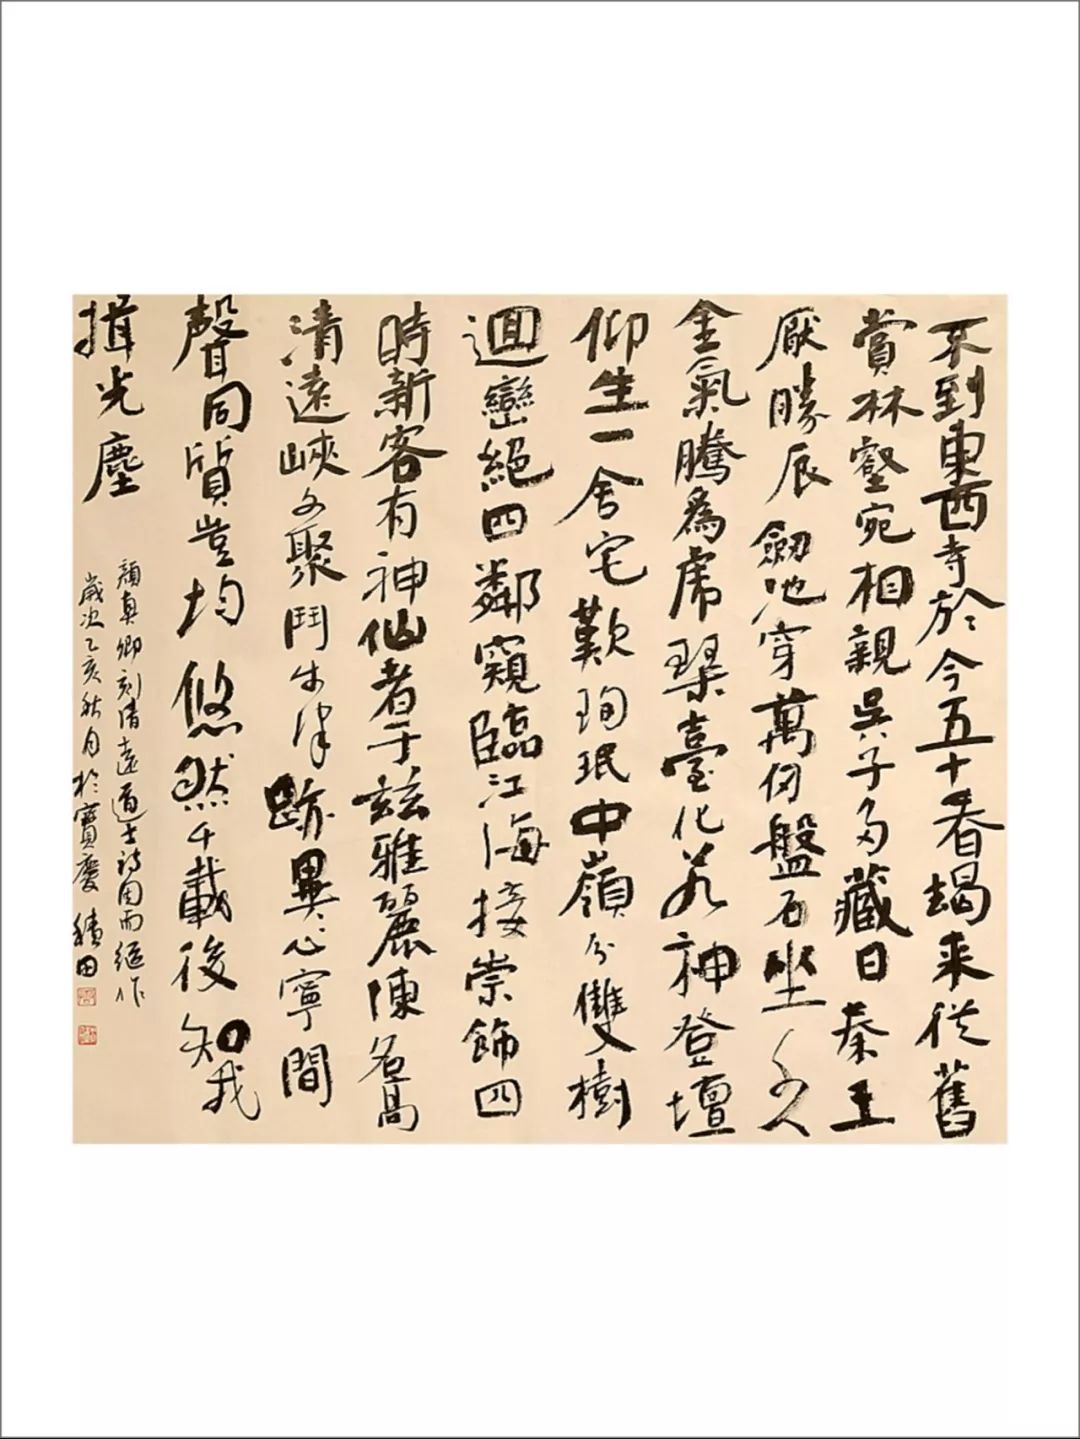 不到東西寺於今五十春朅来從舊
賞林壑宛相親吳子多藏日秦王
厭勝辰劒池穿萬仞盤石坐千人
金氣騰爲虎琴臺化若神登壇
仰生一舍宅歎珣珉中嶺分雙樹
迴巒絕四鄰窺臨江海接崇飾四
時新客有神仙者于茲雅麗陳名高
清遠峽文聚鬥牛津跡異心寧間
聲同質豈均悠然千載後知我
揖光塵
顏真卿刻清遠道士詩因而繼作
歲次乙亥秋月於寶慶 積田